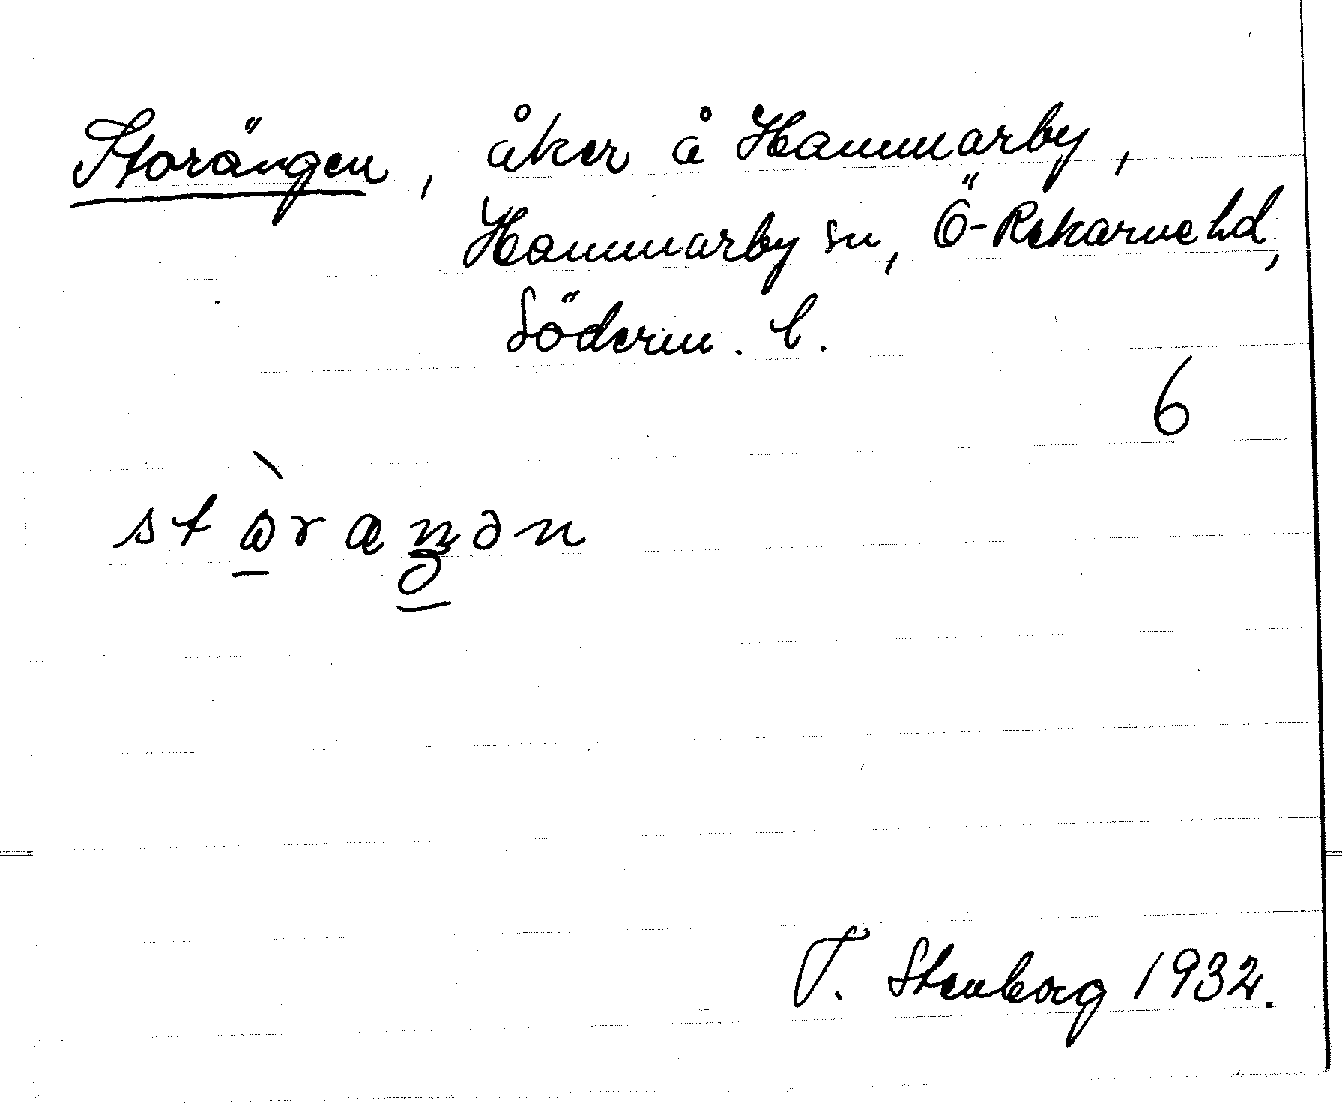 Storängen, åker å Hammarby,
Hammarby sn, Ö-Rekarne hd,
Söderm. l.
6
T. Stenborg 1932.